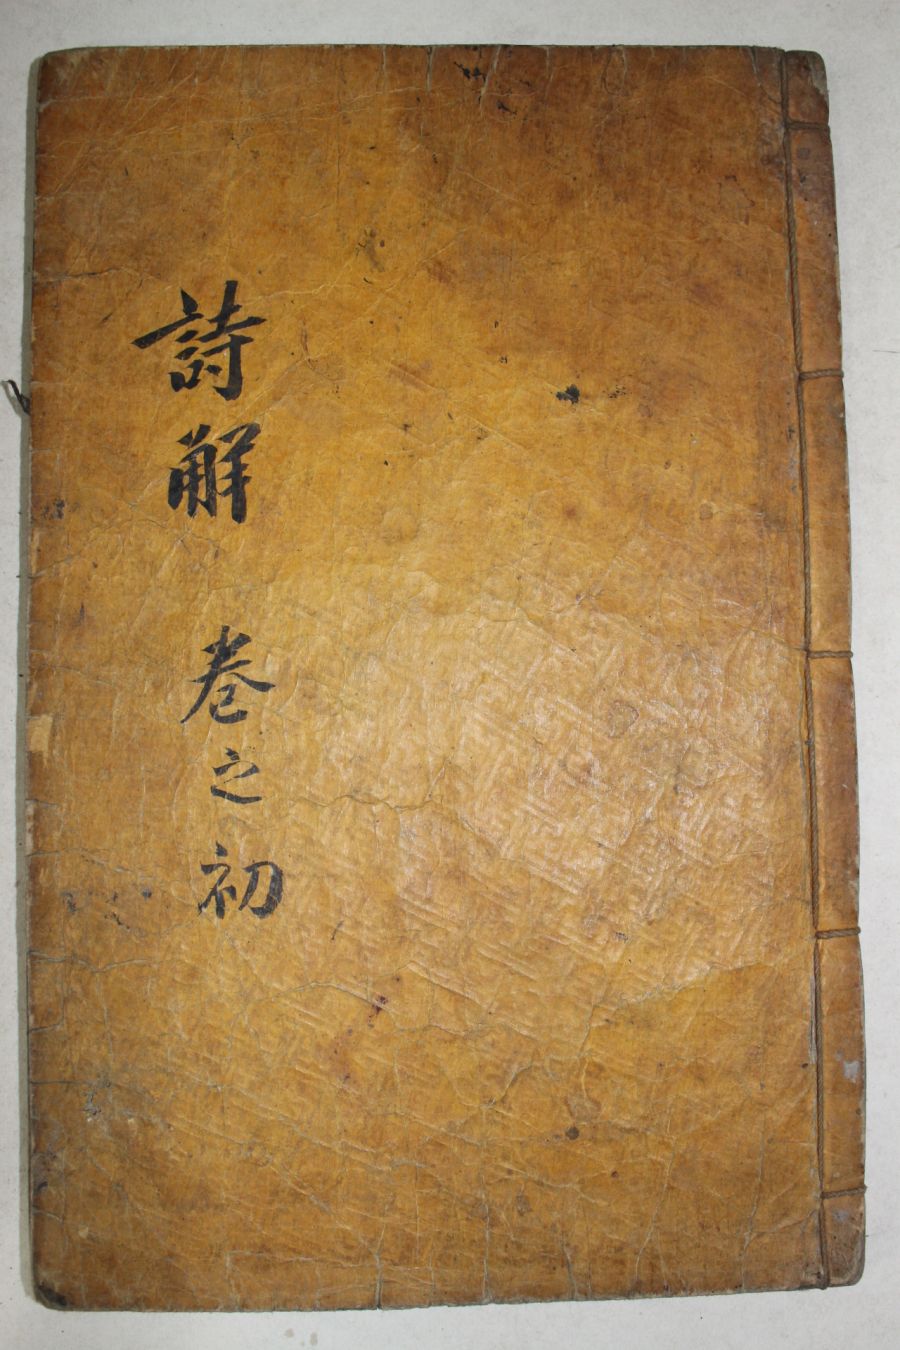 詩解 卷之初